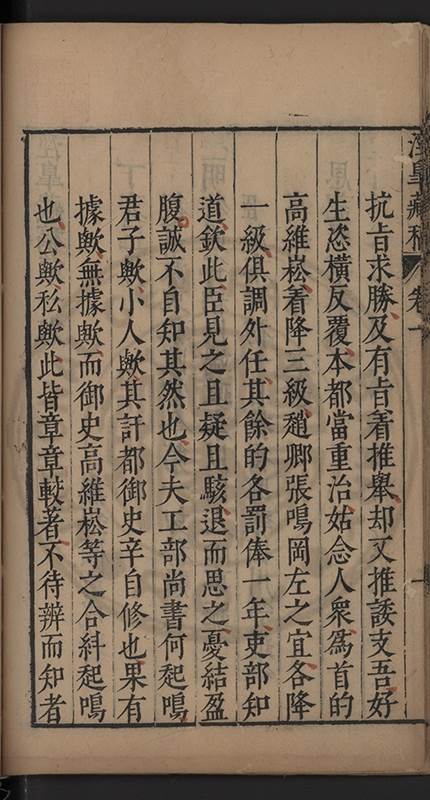 涇臯藏稿 卷一
抗旨求勝及有旨著推舉却又推諉支吾好
生恣橫反覆本都當重治姑念人衆爲首的
高維崧着降三級趙卿張鳴岡左之宜各降
一級俱調外任其餘的各罰俸一年吏部知
道欽此臣見之且疑且駭退而思之憂結盈
腹誠不自知其然也今夫工部尚書何起鳴
君子歟小人歟其訐都御史辛自修也果有
據歟無據歟而御史高維崧等之合糾起鳴
也公歟私歟此皆章章較著不待辨而知者